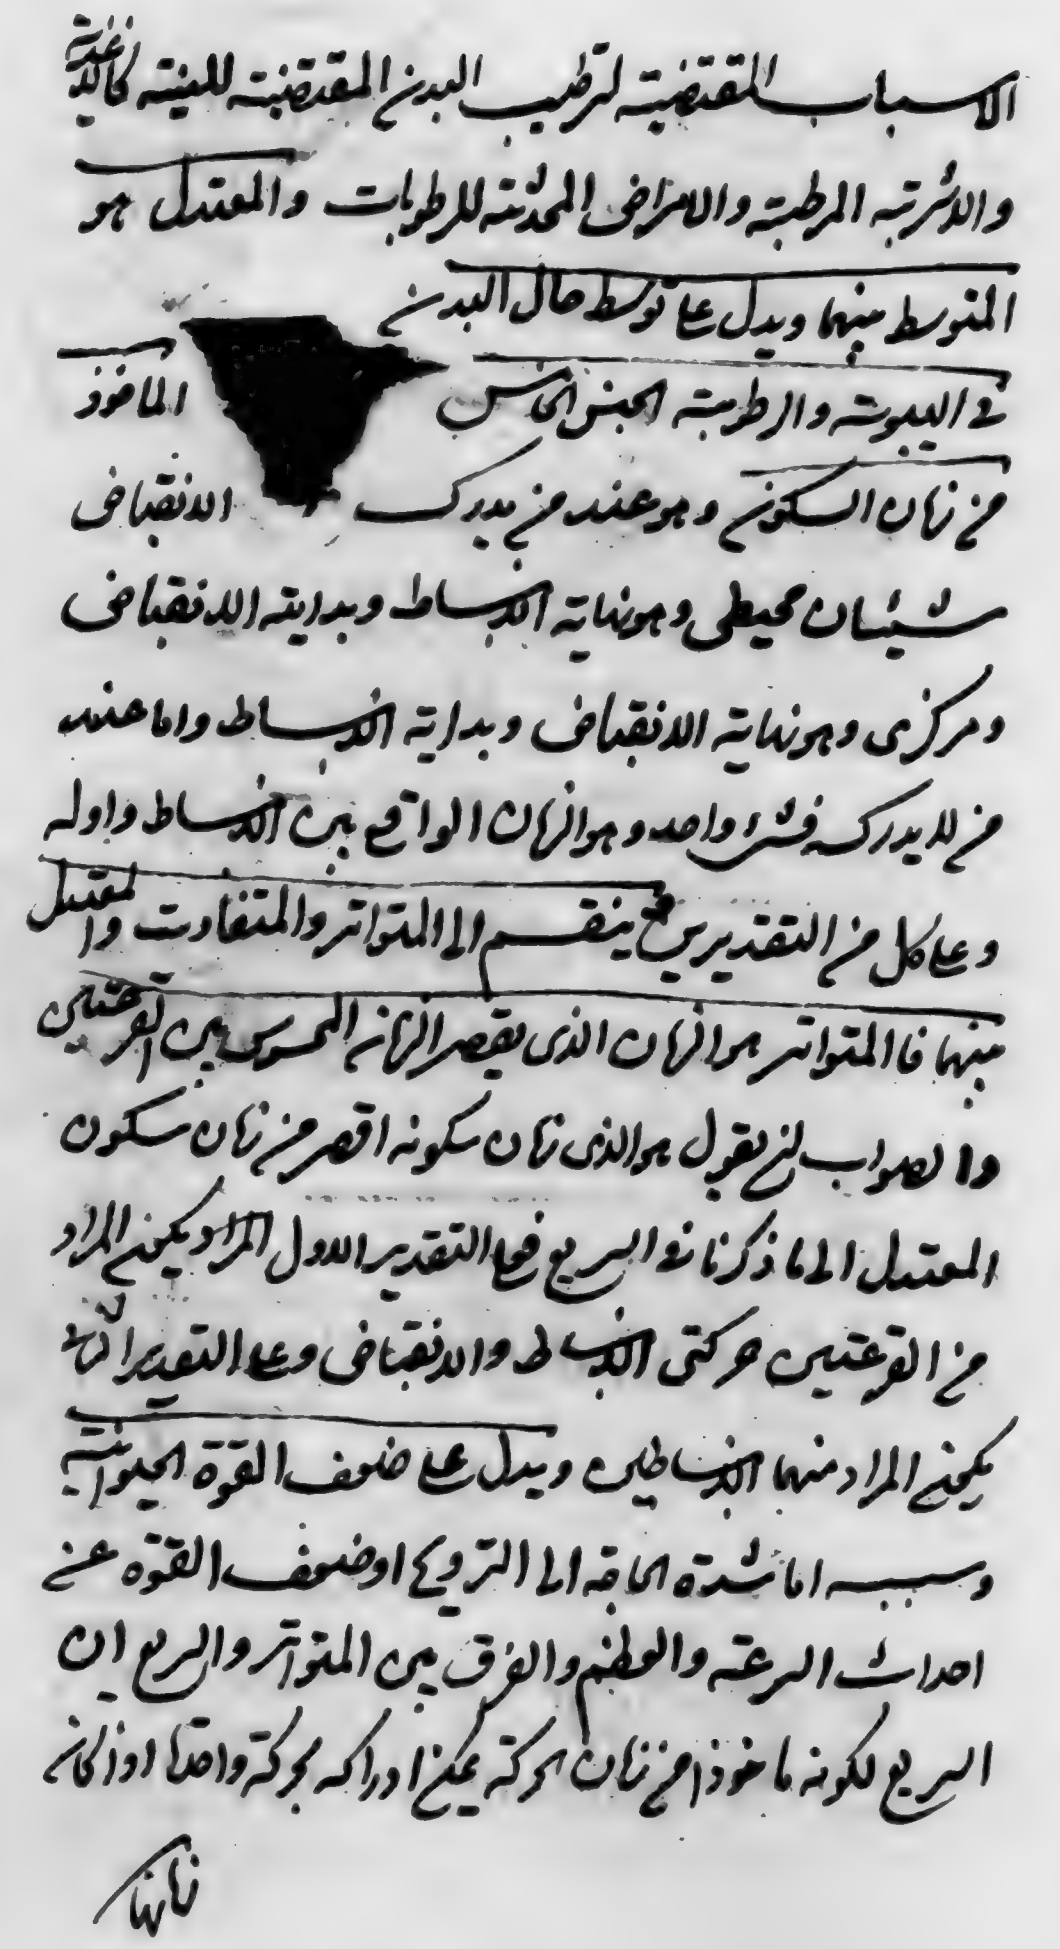 الاسباب المقتضية لترطيب البدن المقتضية للينه كالاغذية
والاشربة المرطبة والامراض المحدثة للرطوبات والمعتدل هو
المتوسط بينهما ويدل على توسط حال البدن
في اليبوسة والرطوبة الجنس الخامس الماخوذ
من زمان السكون وهو عند من يدرك الانقباض
شيئان محيطى وهو نهاية الانبساط وبداية الانقباض
ومركزى وهو نهاية الانقباض وبداية الانبساط واما عند
من لا يدركه فشئ واحد وهو الزمان الواقع بين الانبساط واوله
وعلى كل من التقديرين ينقسم الى المتواتر والمتفاوت والمعتدل
بينهما فالمتواتر هو الزمان الذى يقصر الزمان المحسوس بين القرعتين
والصواب ان يقول هو الذى زمان سكونه اقصر من زمان سكون
المعتدل الى ما ذكرنا في السريع فعلى التقدير الاول المراد يكون المراد
من القرعتين حركتى الانبساط والانقباض وعلى التقدير الثانى
يكون المراد منهما الانبساطين ويدل على ضعف القوة الحيوانية
وسببه اما شدة الحاجة الى الترويح او ضعف القوة عن
احداث السرعة والعظم والفرق بين المتواتر والسريع ان
السريع لكونه ماخوذا من زمان الحركة يمكن ادراكه بحركة واحدة اذا كان
زمانها